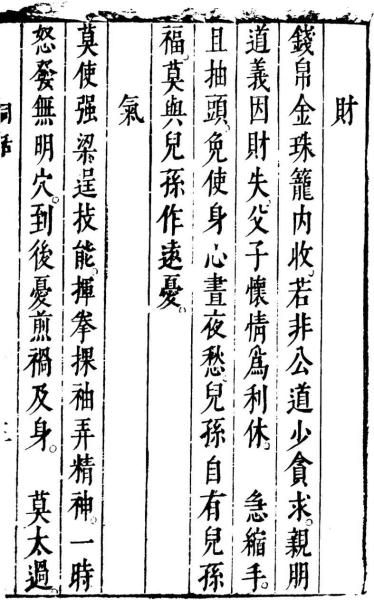 財
錢帛金珠籠内收。若非公道少貪求。親朋
道義因財失。父子懷情爲利休。　急縮手。
且抽頭。免使身心晝夜愁。兒孫自有兒孫
福。莫與兒孫作遠憂。
氣
莫使强梁逞技能。揮拳捰袖弄精神。一時
怒發無明穴。到後憂煎禍及身。　莫太過。